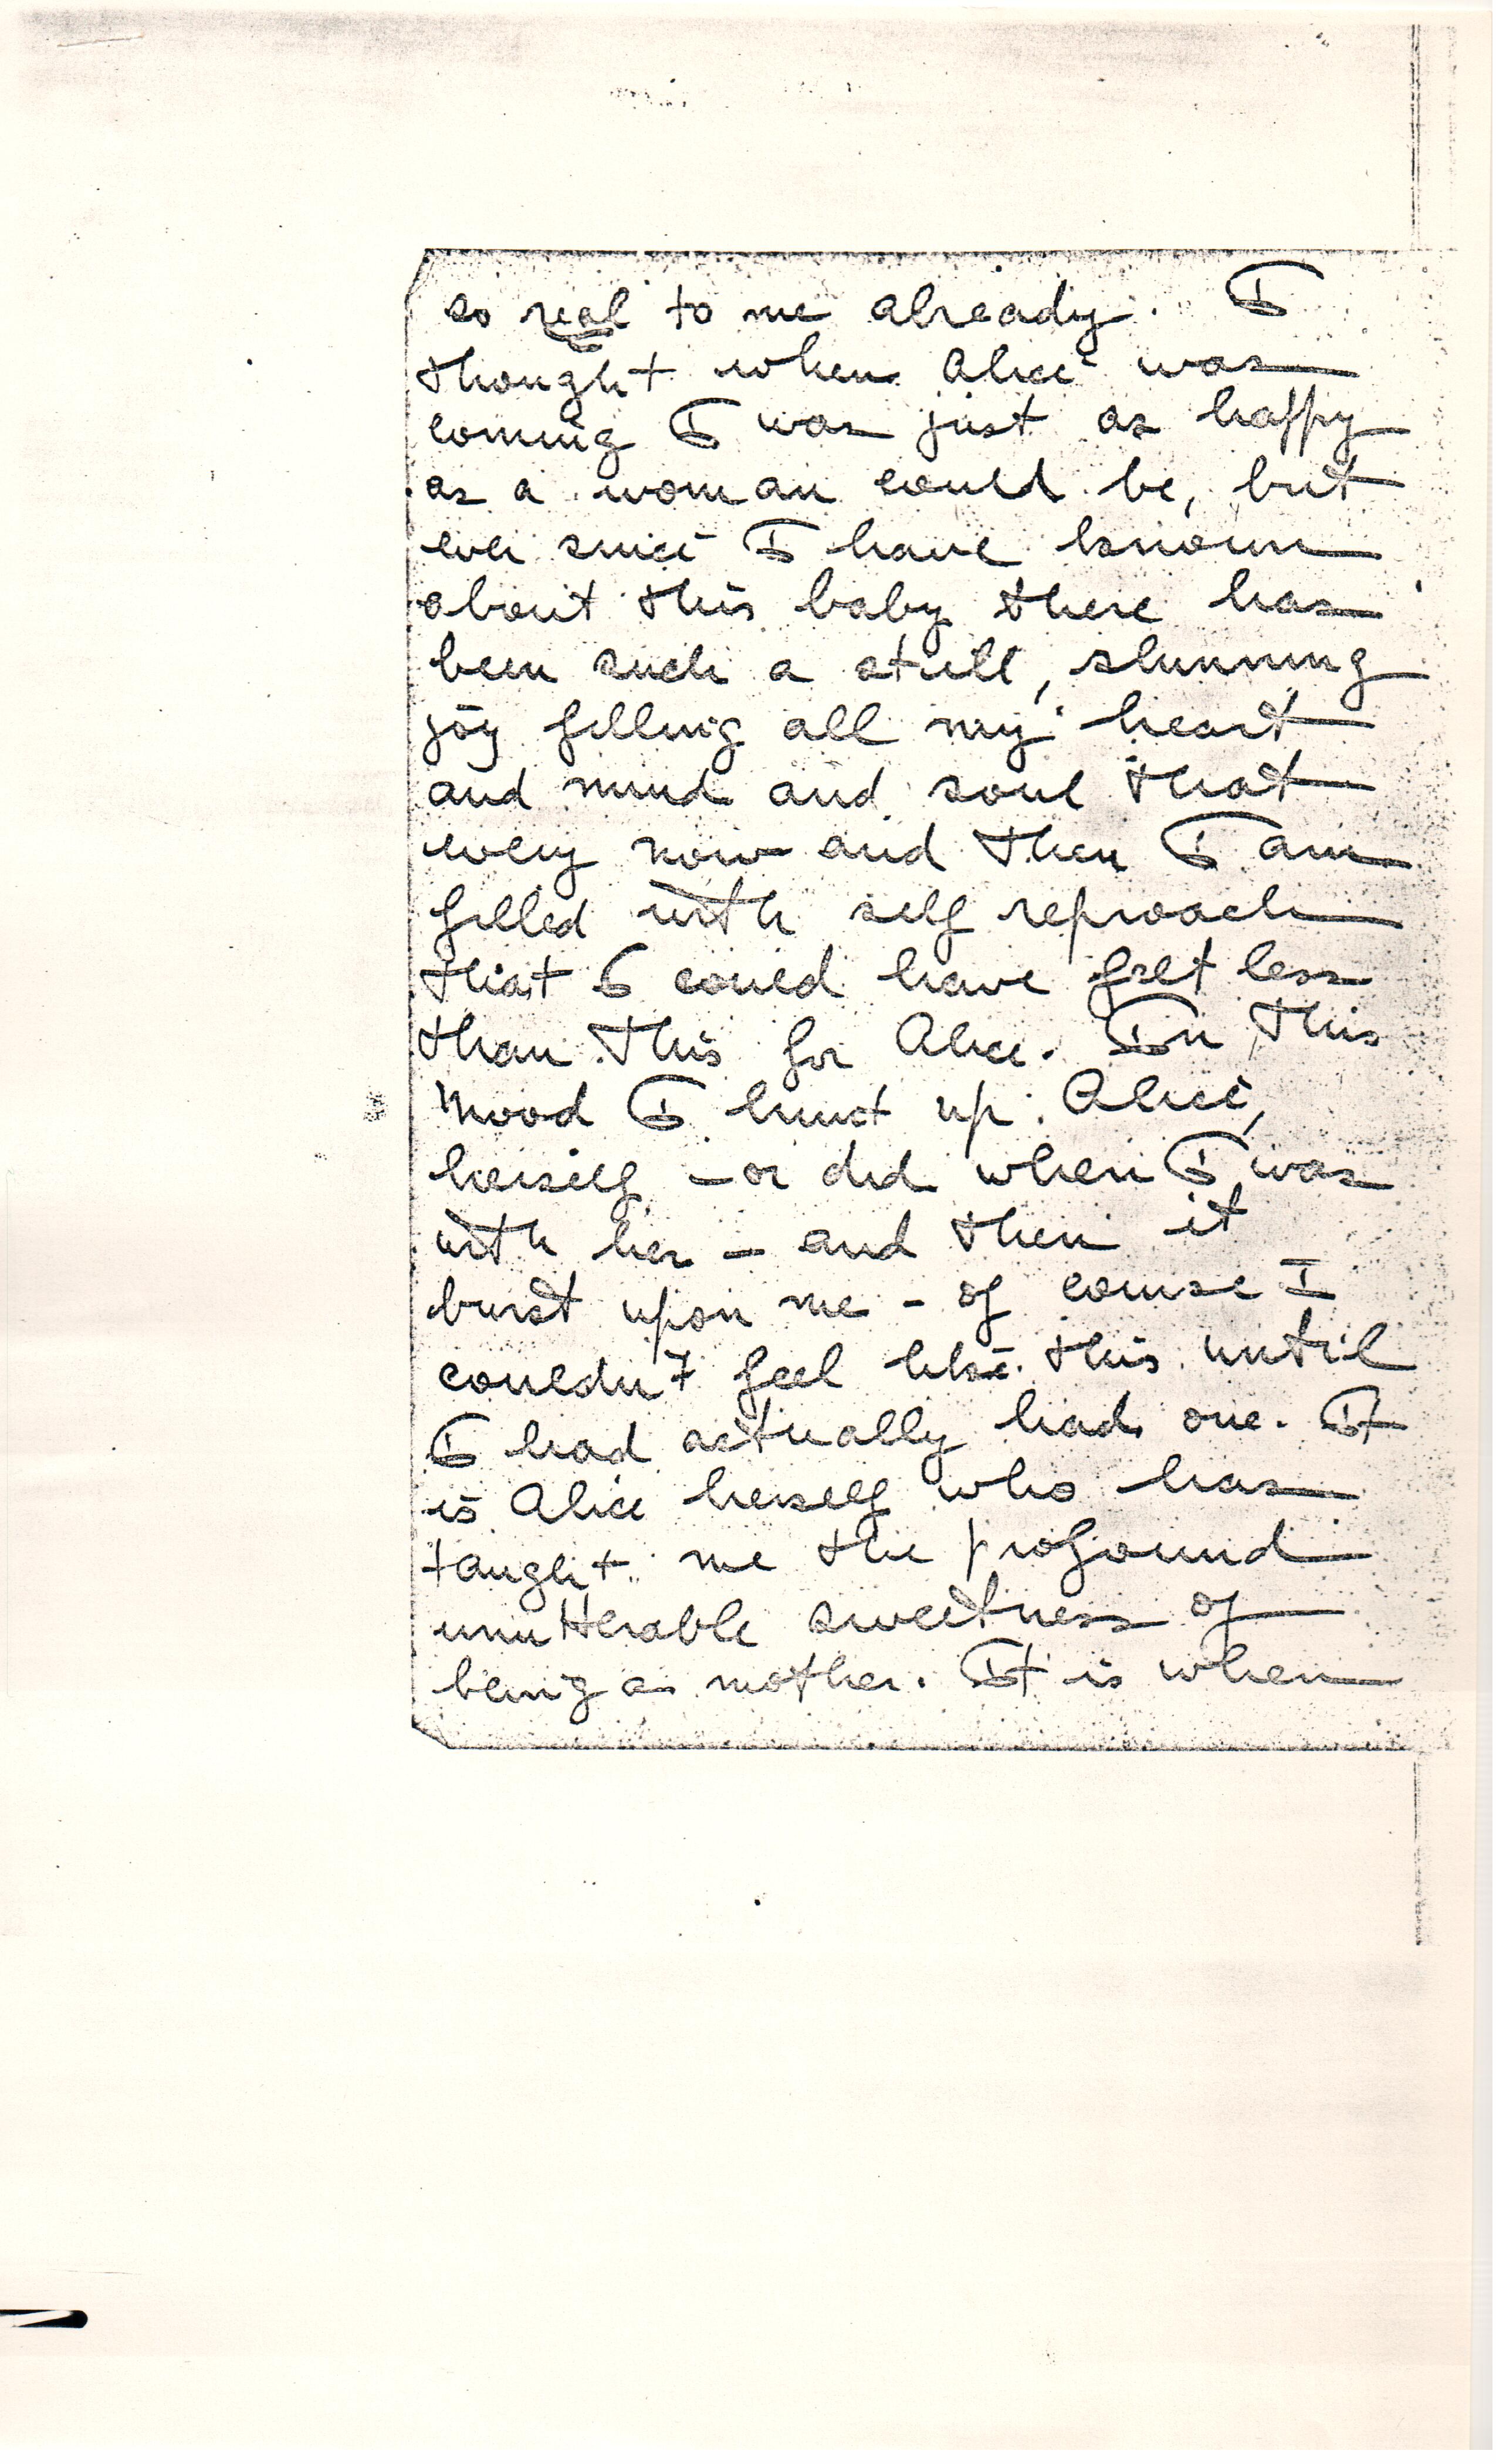 so real to me already. I
thought when Alice was
coming I was just as happy
as a woman could be, but
ever since I have known
about this baby there has
been such a still, shinning
joy filling all my heart
and mind and soul that
every now and then I am
filled with self reproach
that I could have felt less
than this for Alice. In this
mood I hunt up Alice,
herself – or did when I was
with her – and then it
burst upon me – of course I
couldn't feel like this until
I had actually had one. It
is Alice herself who has
taught me the profound
unutterable sweetness of
being a mother. It is when